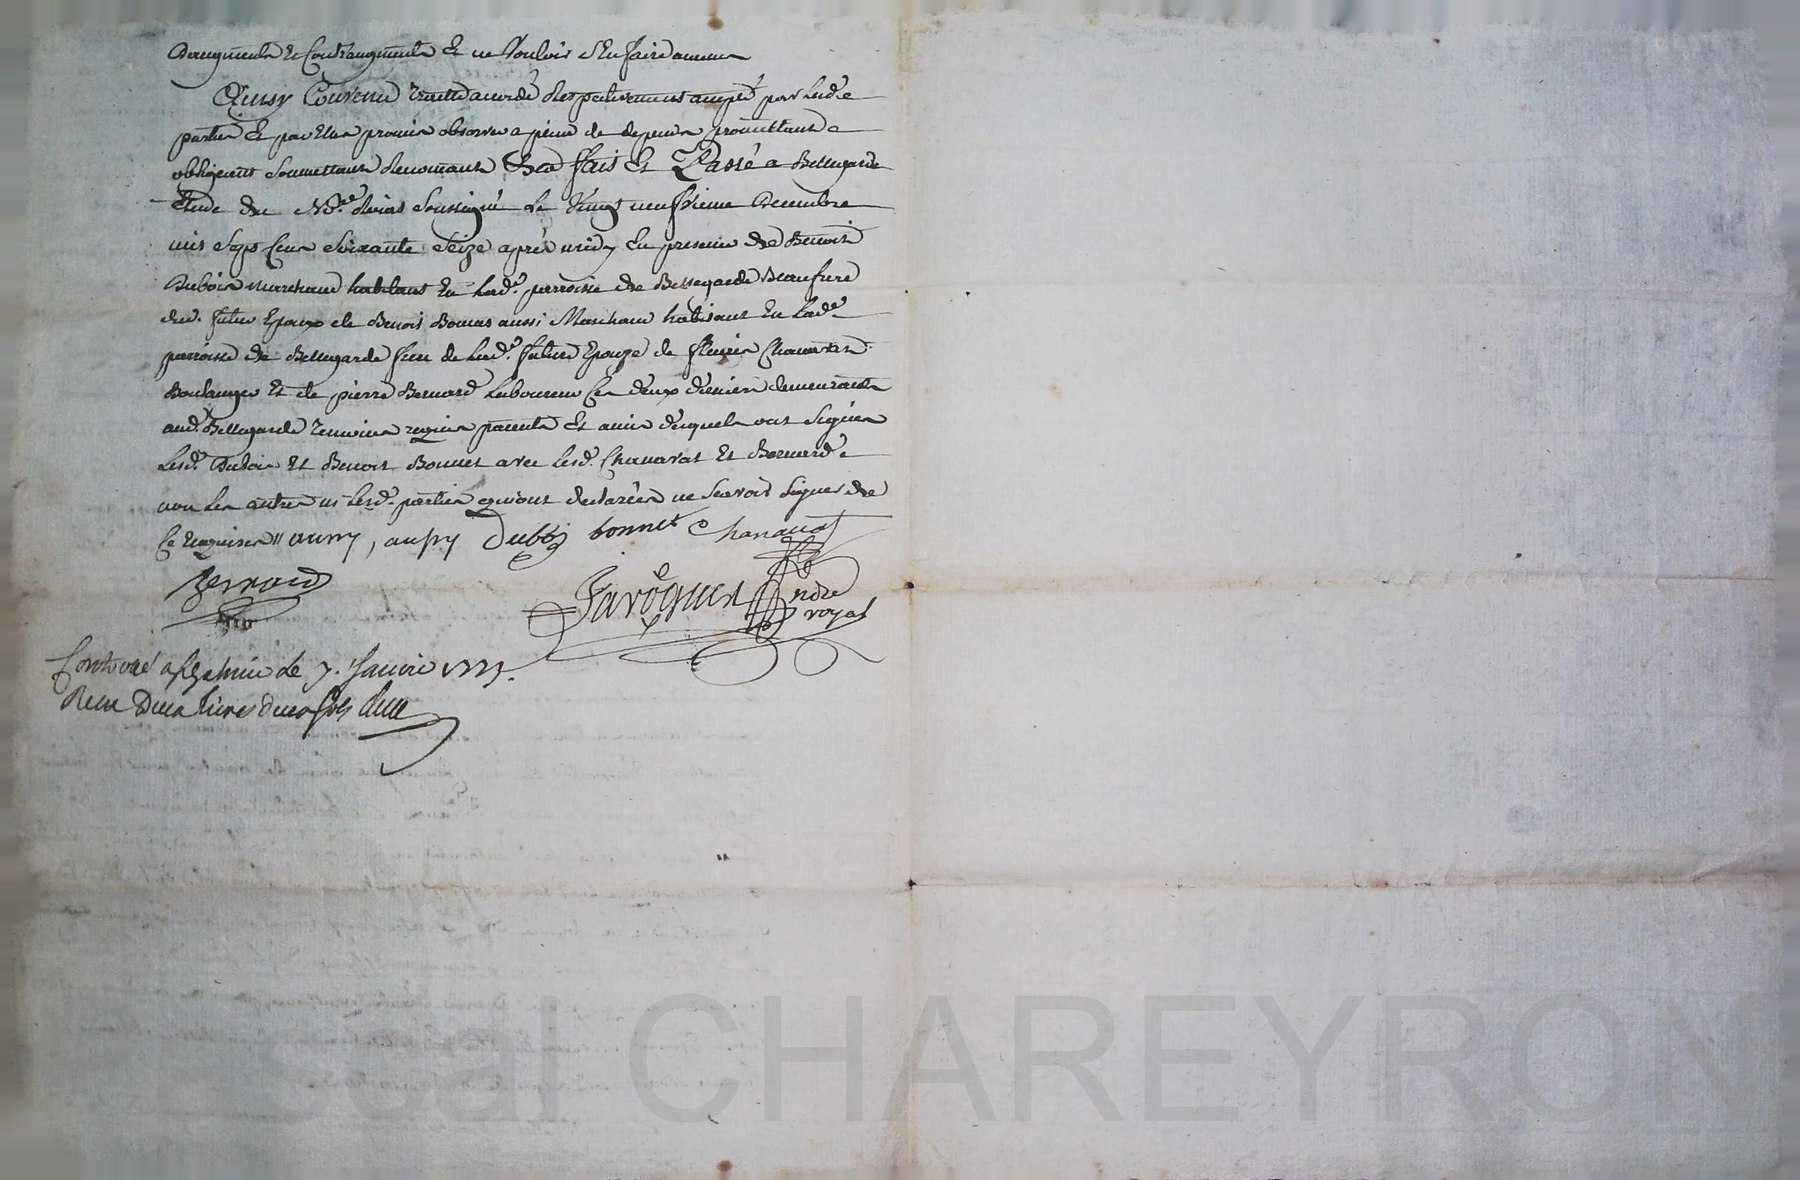 D'augments et Contraugments et ne Vouloir s'En faire aucuns
Ainsy Convenu Traitté accordé Respectivement accepté par Lesd.es
parties et par Elles promis observer a peine de depens promettant
obligeant Soumettant Renonçant &ca fait Et Passé a Bellegarde
Etude du No.re Roial Soussigné Le Vingt neufvieme Decembre
mil Sept Cent Soixante Seize après midy En presence de Benoit
Dubois Marchand habitant En Lad.e parroisse de Bellegarde Beaufrere
dud. futur Epoux de Benoit Bonnet aussi Marchand habitant En Lad.e
parroisse de Bellegarde de Lad.e future Epouze de fleurie Chanavat
Boulanger Et de pierre Bernard Laboureur Ces deux derniers demeurants
aud. Bellegarde Temoins requis parents Et amis desquels ont Signés
Lesd. Dubois Et Benoit Bonnet avec Lesd. Chanavat Et Bernard
non Les autres ni Lesd. parties qui ont declarées ne Scavoir Signer de
Ce Enquises Dubois bonnet Chanavat
Bernard
Favrogues Ndre
royal
Controllé a le 7. Janvier 1777.
Recu Deux Livres deux sols
Pascal CHAREYRON